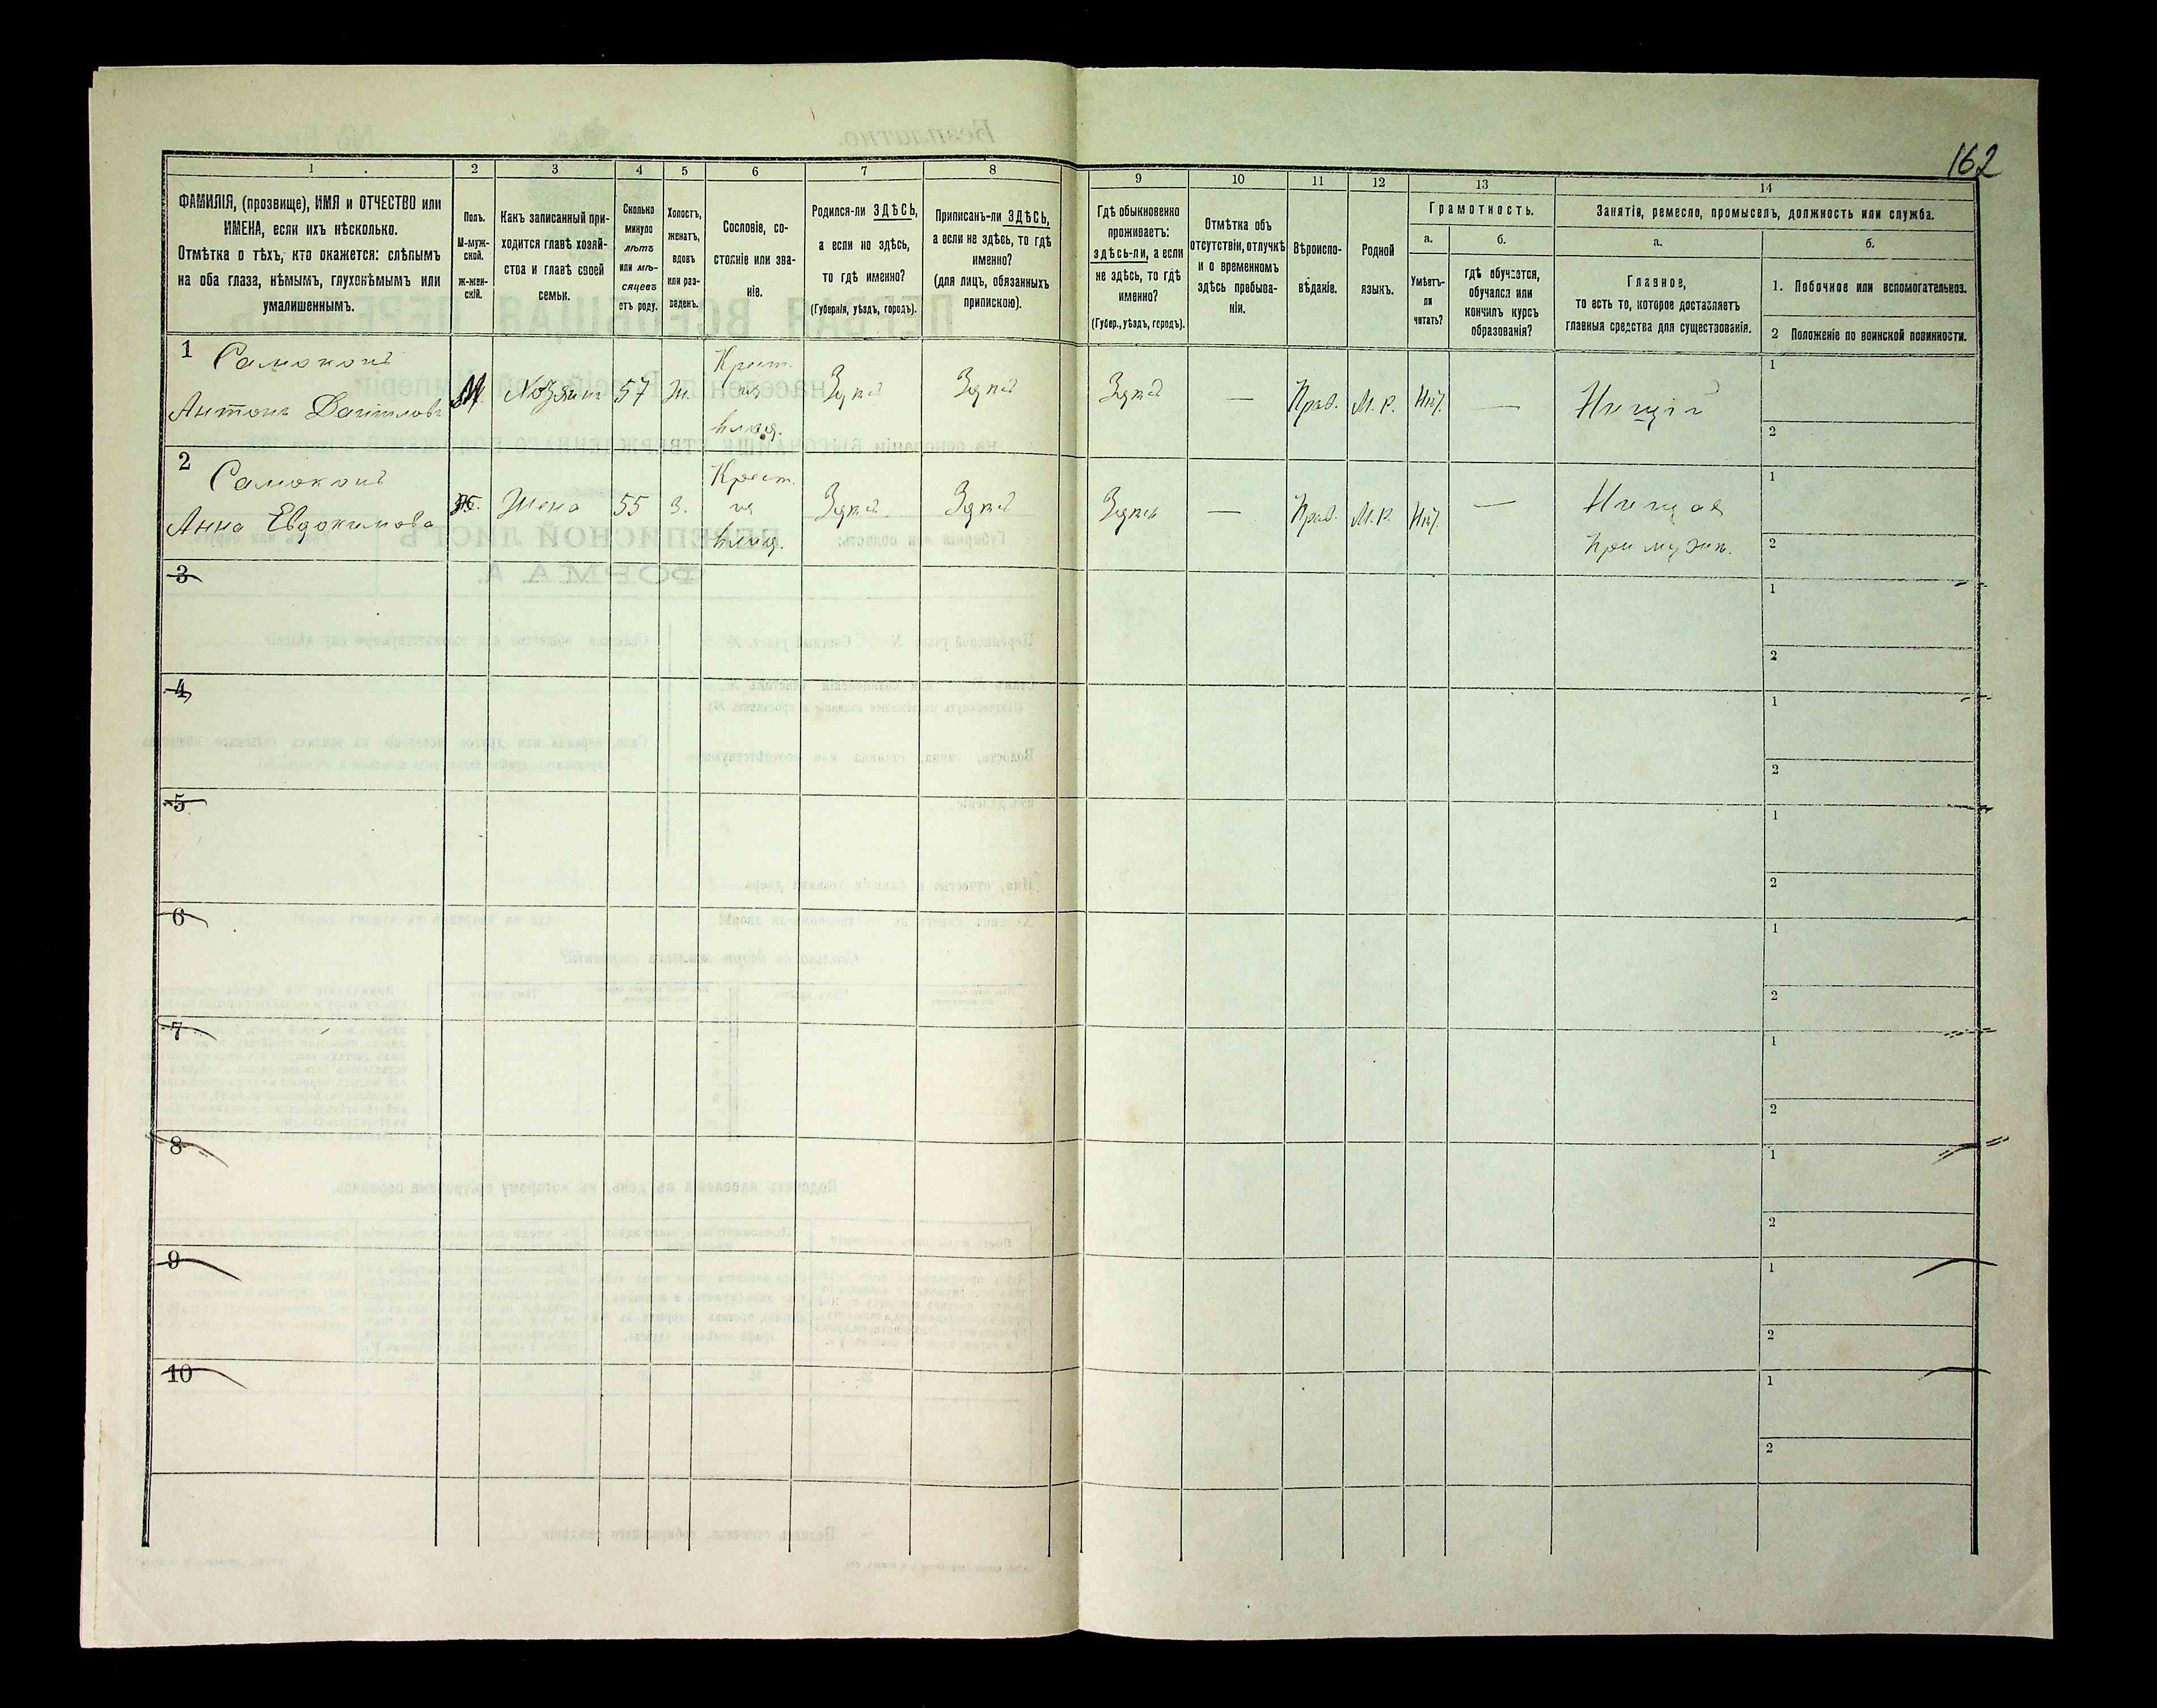 162
1
2
3
4
5
6
7
8
9
10
11
12
13
14
ФАМИЛІЯ, (прозвище), ИМЯ и ОТЧЕСТВО или
ИМЕНА, если ихъ нѣсколько.
Отмѣтка о тѣхъ, кто окажется: слѣпымъ
на оба глаза, нѣмымъ, глухонѣмымъ или
умалишеннымъ.
Полъ.
М-муж-
ской.
Ж-жен-
скій.
Какъ записанный при-
ходится главѣ хозяй-
ства и главѣ своей
семьи.
Сколько
минуло
лѣтъ
или мѣ-
сяцевъ
отъ роду.
Холостъ,
женатъ,
вдовъ
или раз-
веденъ.
Сословіе, со-
стояніе или зва-
ніе.
Родился-ли ЗДѢСЬ,
а если не здѣсь,
то гдѣ именно?
(Губернія, уѣздъ, городъ).
Приписанъ-ли ЗДѢСЬ,
а если не здѣсь, то гдѣ
именно?
(для лицъ, обязанныхъ
припискою).
Гдѣ обыкновенно
проживаетъ:
здѣсь-ли, а если
не здѣсь, то гдѣ
именно?
(Губер., уѣздъ, городъ).
Отмѣтка объ
отсутствіи, отлучкѣ
и о временномъ
здѣсь пребыва-
ніи.
Вѣроиспо-
вѣданіе.
Родной
языкъ.
Грамотность.
а.
Умѣетъ-
ли
читать?
б.
гдѣ обучается,
обучался или
кончилъ курсъ
образованія?
Занятіе, ремесло, промыселъ, должность или служба.
а.
Главное,
то есть то, которое доставляетъ
главныя средства для существованія.
б.
1. Побочное или вспомогательное.
2 Положеніе по воинской повинности.
1 Самокопъ
Антонъ Даниловъ
М. Хозяинъ 57 Ж.
Крест.
из
влад.
— Прав. М. Р. Нѣт. — Нищій
1
2
2 Самокопъ
Анна Евдокимова
Ж. Жена 55 З.
Крест.
из
— Прав. М. Р. Нѣт. — Нищая
при мужѣ.
1
2
3
1
2
4
1
2
5
1
2
6
1
2
7
1
2
8
1
2
9
1
2
10
1
2